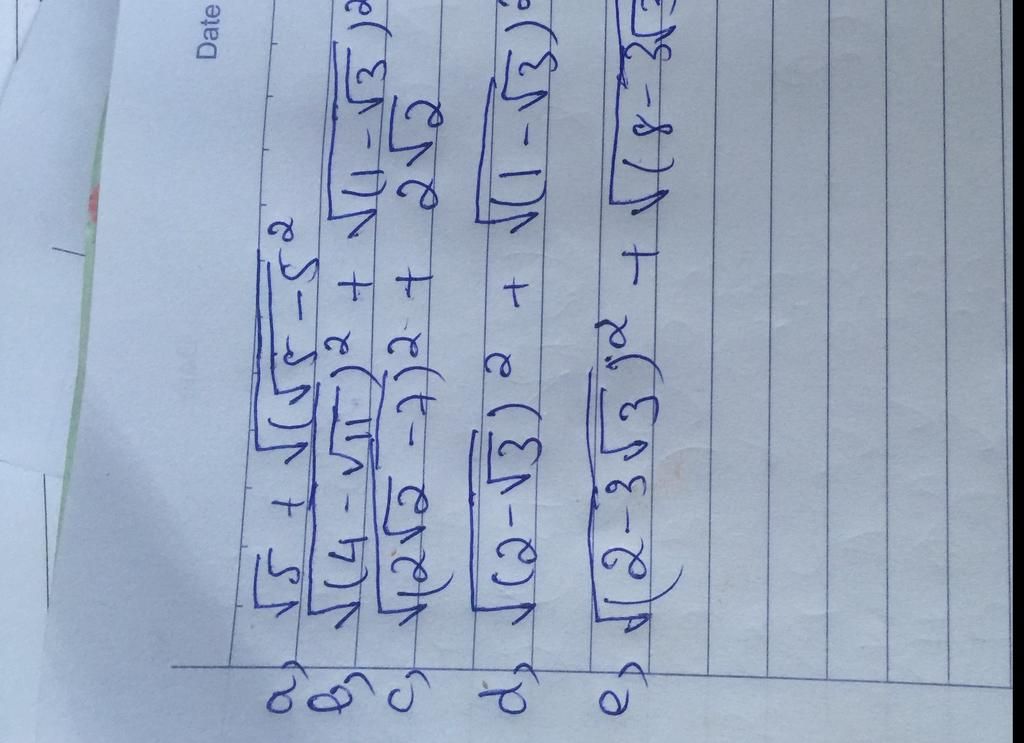 Date
a) √5 + √(√5 - 5²
b) √(4 - √11)² + √(1 - √3)²
c) √(2√2 - 7)² + 2√2
d) √(2 - √3)² + √(1 - √3)²
e) √(2 - 3√3)² + √(8 - 3√3